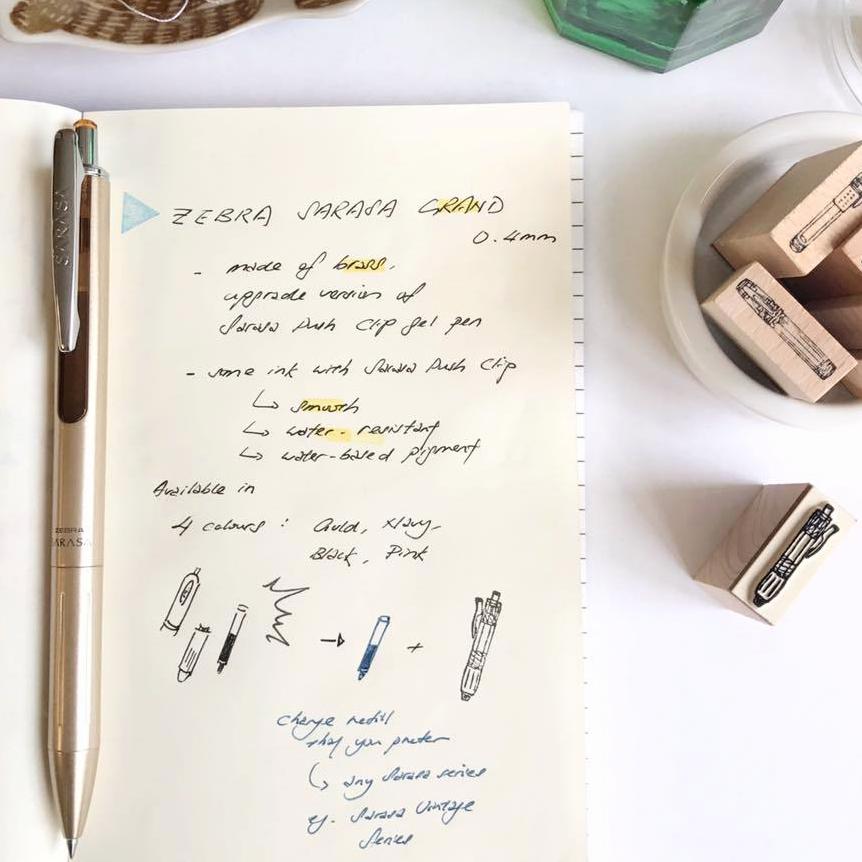 ZEBRA SARASA GRAND
0.4mm
- made of brass.
upgrade version of
Sarasa Push Clip gel pen
- same ink with Sarasa Push Clip
↳ smooth
↳ water-resistant
↳ water-based pigment
Available in
4 colours : Gold, Navy,
Black, Pink
→ +
change refill
that you prefer
↳ any Sarasa series
eg. Sarasa Vintage
Series
SARASA
ZEBRA
SARASA